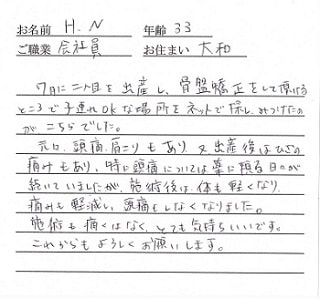 お名前 H.N 年齢 33
ご職業 会社員 お住まい 大和
7月に二人目を出産し、骨盤矯正をして頂ける
ところで子連れokな場所をネットで探し、みつけたの
がこちらでした。
元々、頭痛、肩こりもあり、又出産後はひざの
痛みもあり、特に頭痛については薬に頼る日々が
続いていましたが、施術後は、体も軽くなり、
痛みも軽減し、頭痛もしなくなりました。
施術も痛くはなく、とても気持ちいいです。
これからもよろしくお願いします。